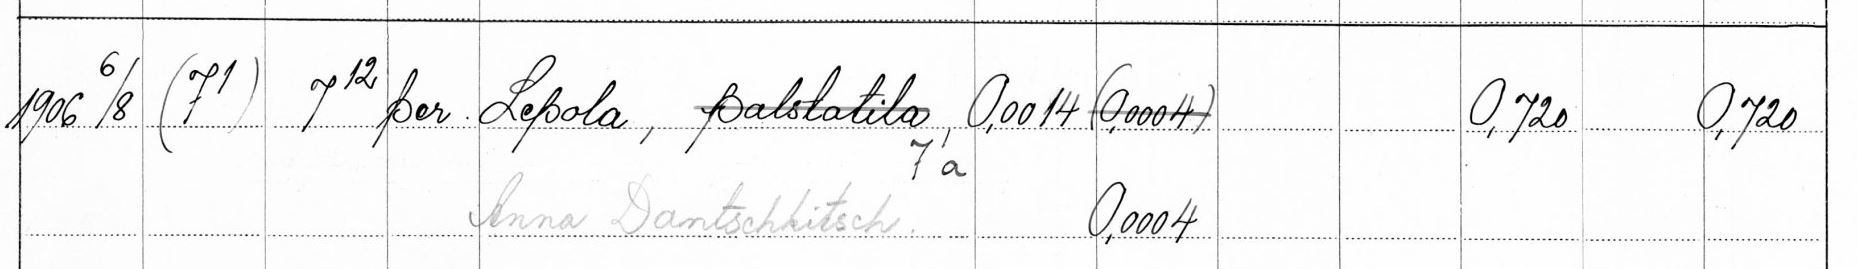 1906 6/8 (7¹) 7¹² per. Lepola, palstatila, 0,0014 (0,0004) 0,720 0,720
7¹a
Anna Dantschkitsch. 0,0004